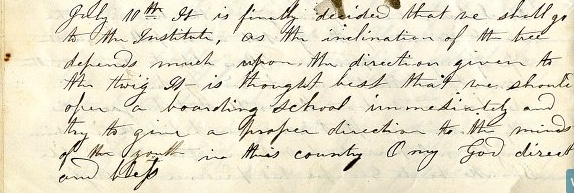 July 10th It is finally decided that we shall go
to the Institute, as the inclination of the tree
depends much upon the direction given to
the twig It is thought best that we should
open a boarding school immediately and
try to give a proper direction to the minds
of the youth in this country O my God direct
and bless